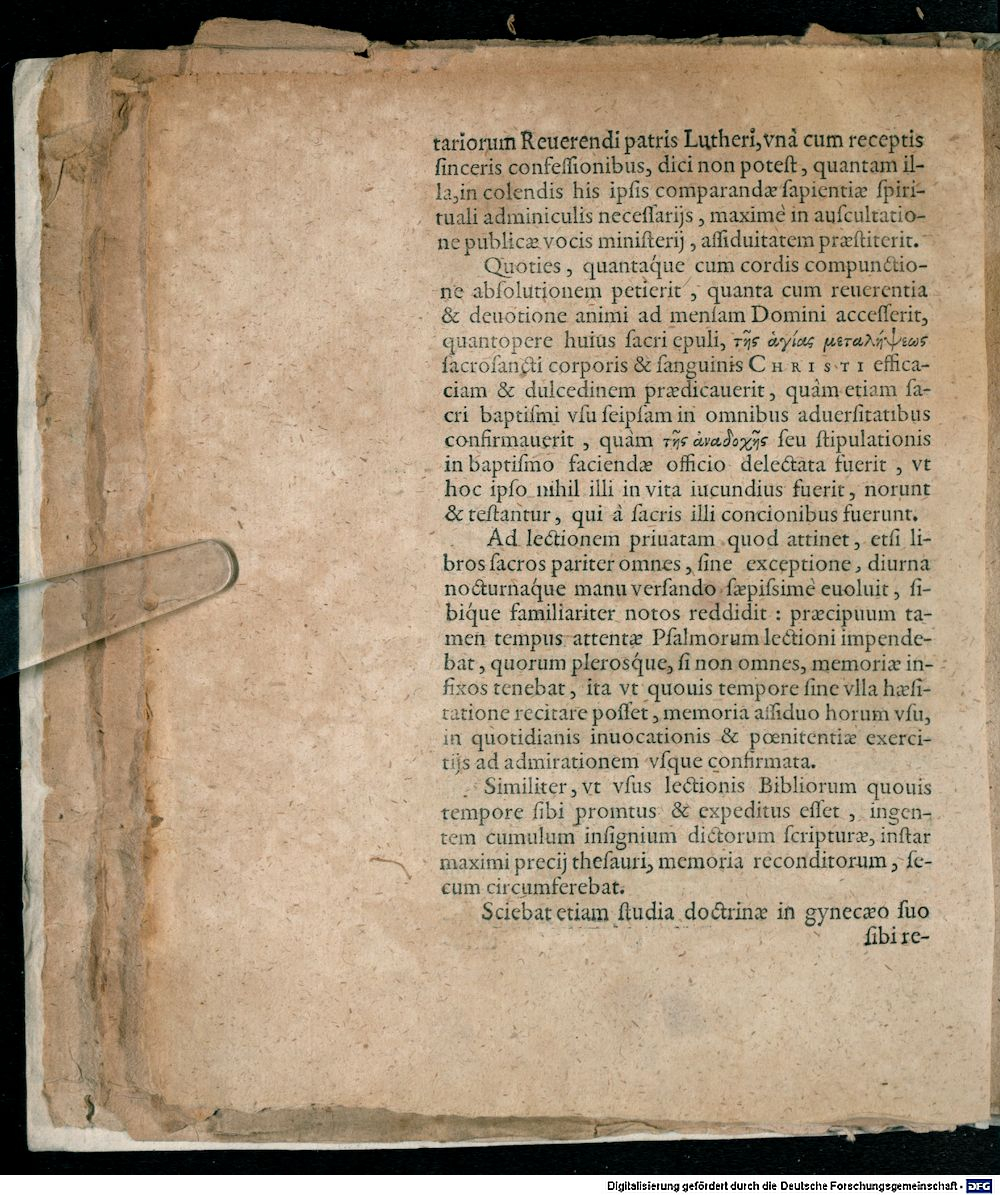 tariorum Reuerendi patris Lutheri, vnà cum receptis
ſinceris confeſſionibus, dici non poteſt, quantam il-
la, in colendis his ipſis comparandæ ſapientiæ ſpiri-
tuali adminiculis neceſſarijs, maximè in auſcultatio-
ne publicæ vocis miniſterij, aſſiduitatem præſtiterit.
Quoties, quantáque cum cordis compunctio-
ne abſolutionem petierit, quanta cum reuerentia
& deuotione animi ad menſam Domini acceſſerit,
quantopere huius ſacri epuli, τῆς ἁγίας μεταλήψεως
ſacroſancti corporis & ſanguinis CHRISTI effica-
ciam & dulcedinem prædicauerit, quàm etiam ſa-
cri baptiſmi vſu ſeipſam in omnibus aduerſitatibus
confirmauerit, quàm τῆς ἀναδοχῆς ſeu ſtipulationis
in baptiſmo faciendæ officio delectata fuerit, vt
hoc ipſo nihil illi in vita iucundius fuerit, norunt
& teſtantur, qui à ſacris illi concionibus fuerunt.
Ad lectionem priuatam quod attinet, etſi li-
bros ſacros pariter omnes, ſine exceptione, diurna
nocturnaq́ue manu verſando ſæpiſsimè euoluit, ſi-
biq́ue familiariter notos reddidit: præcipuum ta-
men tempus attentæ Pſalmorum lectioni impende-
bat, quorum plerosq́ue, ſi non omnes, memoriæ in-
fixos tenebat, ita vt quouis tempore ſine vlla hæſi-
tatione recitare poſſet, memoria aſſiduo horum vſu,
in quotidianis inuocationis & pœnitentiæ exerci-
tijs ad admirationem vſque confirmata.
Similiter, vt vſus lectionis Bibliorum quouis
tempore ſibi promtus & expeditus eſſet, ingen-
tem cumulum inſignium dictorum ſcripturæ, inſtar
maximi precij theſauri, memoria reconditorum, ſe-
cum circumferebat.
Sciebat etiam ſtudia doctrinæ in gynecæo ſuo
ſibi re-
Digitalisierung gefördert durch die Deutsche Forschungsgemeinschaft - DFG